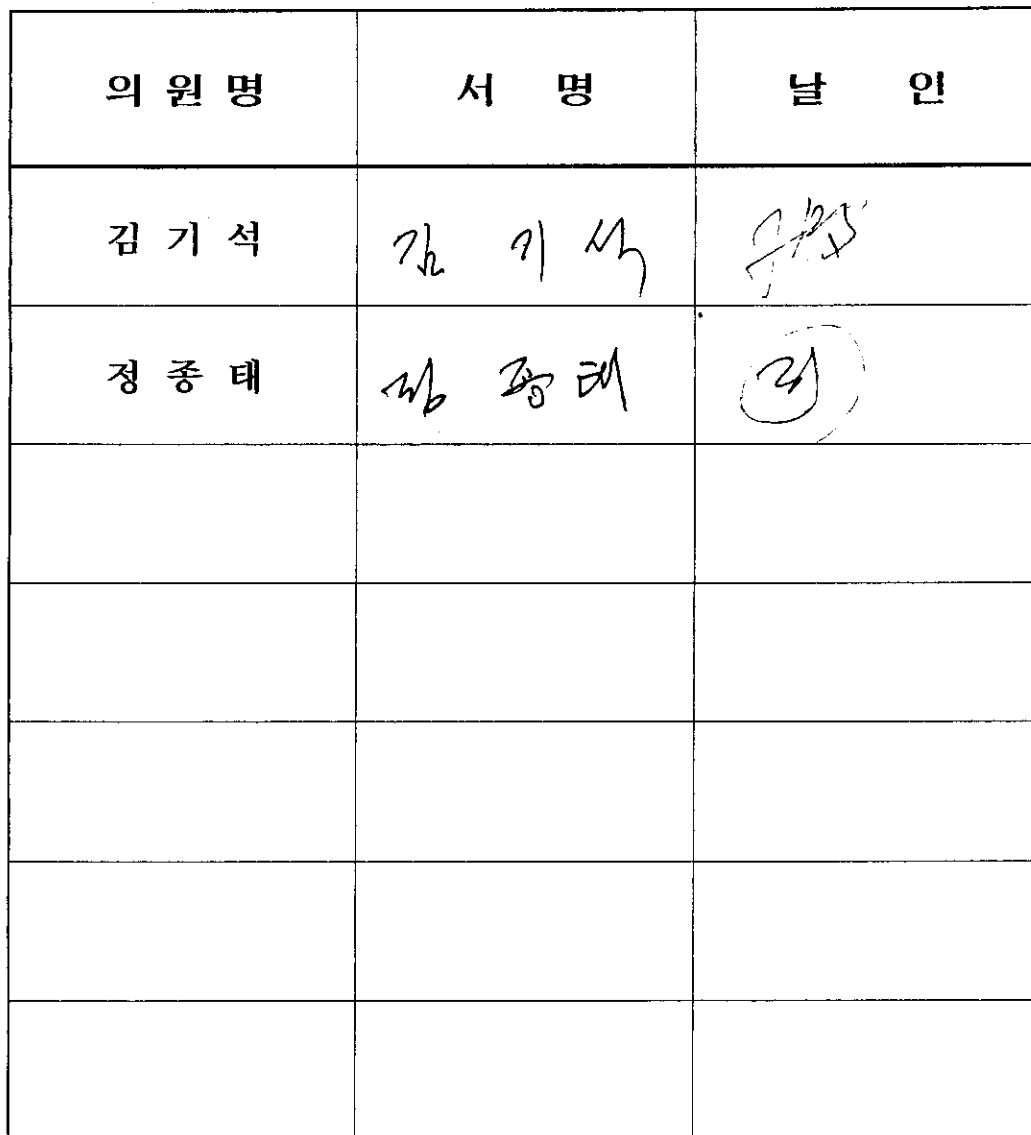 의 원 명 서 명 날 인
김 기 석 김 기 석
정 종 태 정 종 태